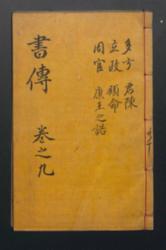 多方 君陳
立政 顧命
周官 康王之誥
書傳 卷之九